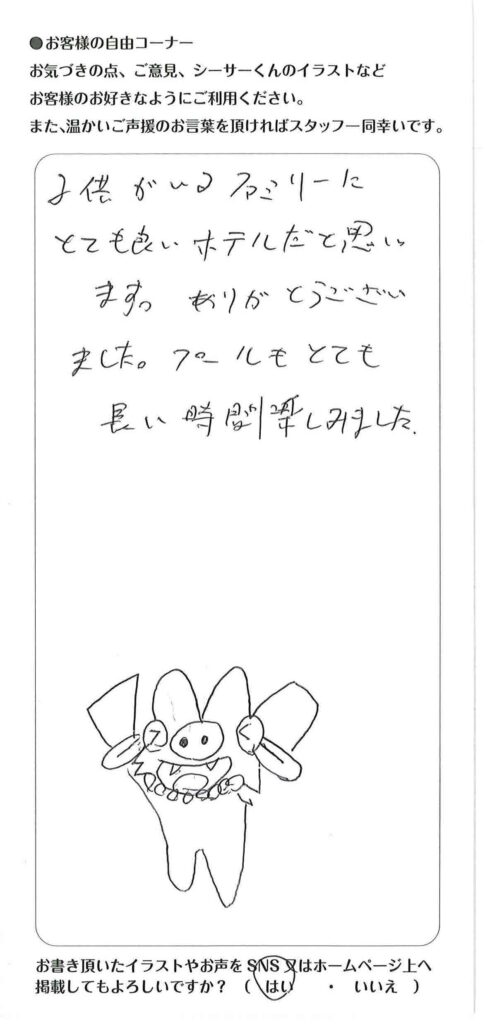 ●お客様の自由コーナー
お気づきの点、ご意見、シーサーくんのイラストなど
お客様のお好きなようにご利用ください。
また、温かいご声援のお言葉を頂ければスタッフ一同幸いです。
子供がいるファミリーに
とても良いホテルだと思い
ます。ありがとうござい
ました。プールもとても
長い時間楽しみました.
お書き頂いたイラストやお声をSNS又はホームページ上へ
掲載してもよろしいですか？（　はい　・　いいえ　）